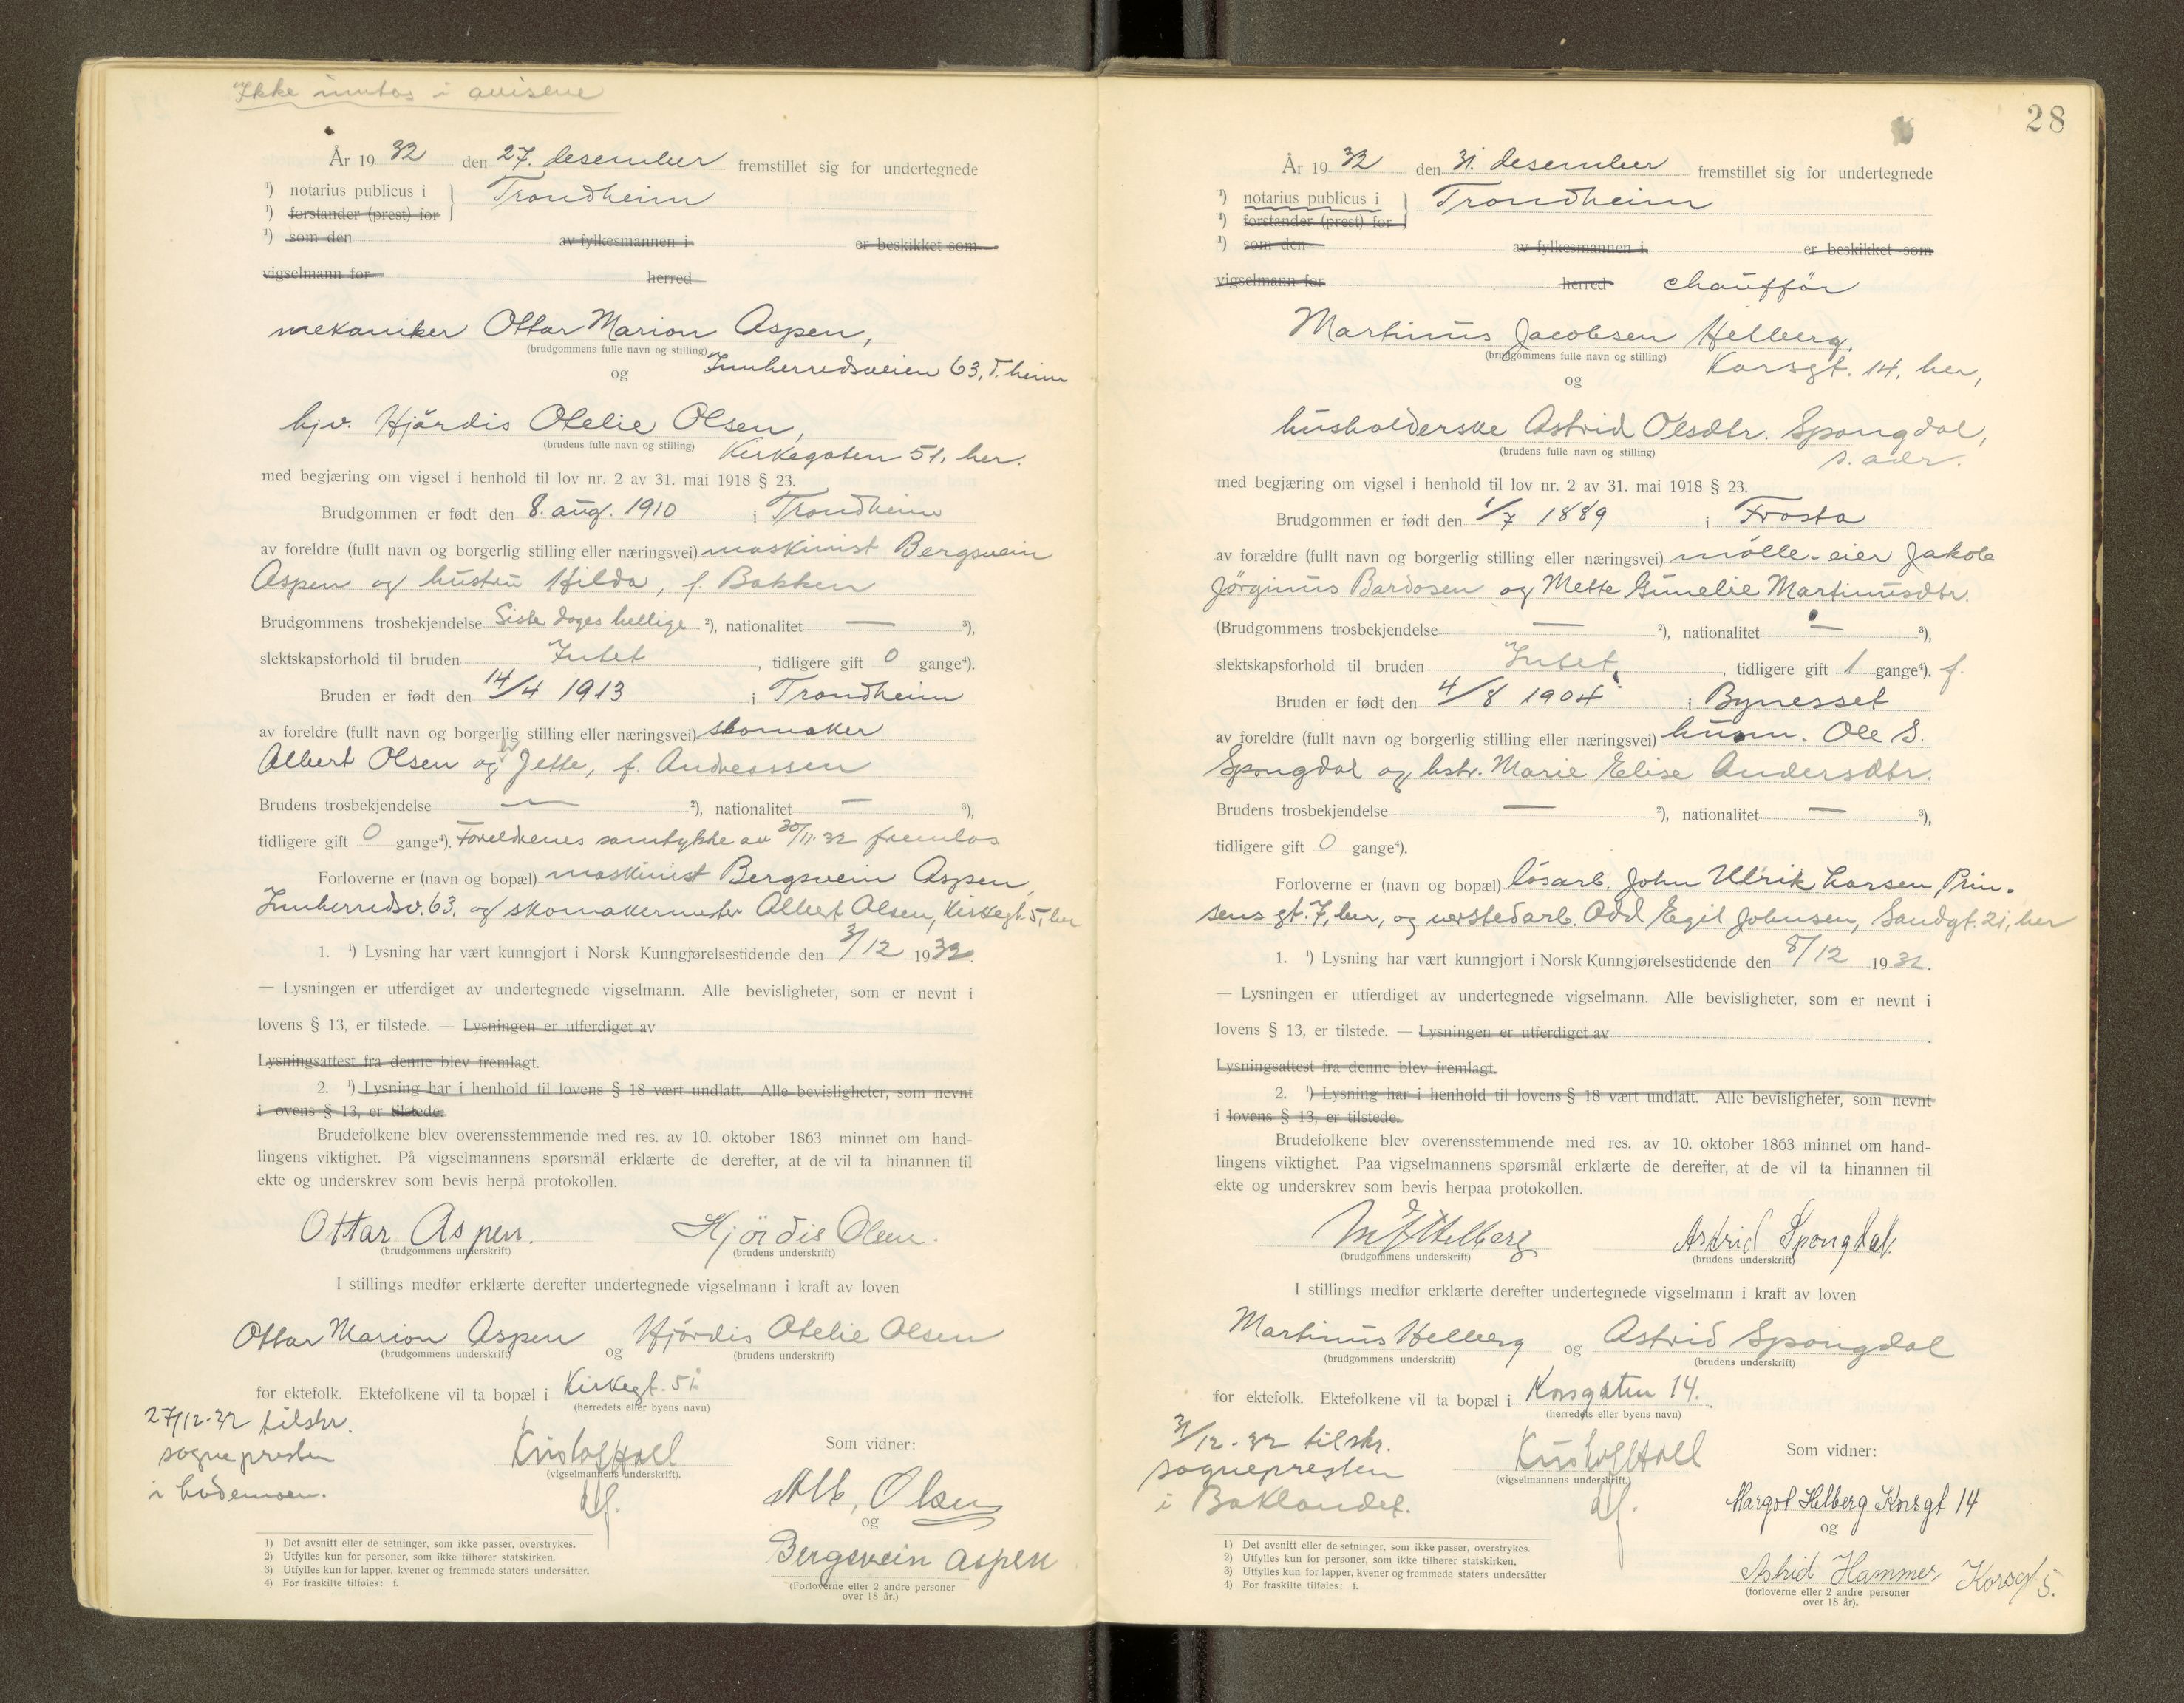 Ikke inntas i avisene
År 1932 den 27. desember fremstillet sig for undertegnede
¹) notarius publicus i Trondheim
¹) forstander (prest) for
¹) som den av fylkesmannen i er beskikket som
vigselmann for herred
mekaniker Ottar Marion Aspen,
(brudgommens fulle navn og stilling)
og Innherredsveien 63, T.heim
hjv. Hjördis Otelie Olsen,
(brudens fulle navn og stilling) Kirkegaten 51, her.
med begjæring om vigsel i henhold til lov nr. 2 av 31. mai 1918 § 23.
Brudgommen er født den 8. aug. 1910 i Trondheim
av foreldre (fullt navn og borgerlig stilling eller næringsvei) maskinist Bergsvein
Aspen og hustru Hilda, f. Bakken
Brudgommens trosbekjendelse Siste dages hellige ²), nationalitet — ³),
slektskapsforhold til bruden Intet, tidligere gift 0 gange⁴).
Bruden er født den 14/4 1913 i Trondheim
av foreldre (fullt navn og borgerlig stilling eller næringsvei) skomaker
Albert Olsen og Jette, f. Andreassen
Brudens trosbekjendelse — ²), nationalitet — ³),
tidligere gift 0 gange⁴). Foreldrenes samtykke av 30/11.32 fremlas
Forloverne er (navn og bopæl) maskinist Bergsvein Aspen,
Innherredsv. 63, og skomakermester Albert Olsen, Kirkegt. 51, her
1. ¹) Lysning har vært kunngjort i Norsk Kunngjørelsestidende den 3/12 1932.
— Lysningen er utferdiget av undertegnede vigselmann. Alle bevisligheter, som er nevnt i
lovens § 13, er tilstede. — Lysningen er utferdiget av
Lysningsattest fra denne blev fremlagt.
2. ¹) Lysning har i henhold til lovens § 18 vært undlatt. Alle bevisligheter, som nevnt
i ovens § 13, er tilstede.
Brudefolkene blev overensstemmende med res. av 10. oktober 1863 minnet om hand-
lingens viktighet. På vigselmannens spørsmål erklærte de derefter, at de vil ta hinannen til
ekte og underskrev som bevis herpå protokollen.
Ottar Aspen. Hjördis Olsen.
(brudgommens underskrift) (brudens underskrift)
I stillings medfør erklærte derefter undertegnede vigselmann i kraft av loven
Ottar Marion Aspen og Hjördis Otelie Olsen
(brudgommens underskrift) (brudens underskrift)
for ektefolk. Ektefolkene vil ta bopæl i Kirkegt. 51
(herredets eller byens navn)
27/12-32 tilskr.
sognepresten
i Lademoen.
Kristof Hall
(vigselmannens underskrift).
cf.
Som vidner:
Alb. Olsen
og
Bergsvein Aspen
(Forloverne eller 2 andre personer
over 18 år.)
1) Det avsnitt eller de setninger, som ikke passer, overstrykes.
2) Utfylles kun for personer, som ikke tilhører statskirken.
3) Utfylles kun for lapper, kvener og fremmede staters undersåtter.
4) For fraskilte tilføies: f.
28
År 1932 den 31. desember fremstillet sig for undertegnede
¹) notarius publicus i Trondheim
¹) forstander (prest) for
¹) som den av fylkesmannen i er beskikket som
vigselmann for herred chaufför
Martinus Jacobsen Helberg,
(brudgommens fulle navn og stilling) Korsgt. 14, her,
og
husholderske Astrid Olsdtr. Spongdal,
(brudens fulle navn og stilling) s. adr.
med begjæring om vigsel i henhold til lov nr. 2 av 31. mai 1918 § 23.
Brudgommen er født den 1/7 1889 i Frosta
av forældre (fullt navn og borgerlig stilling eller næringsvei) mölle-eier Jakob
Jörginus Bardosen og Mette Gunelie Martinusdtr.
(Brudgommens trosbekjendelse — ²), nationalitet — ³),
slektskapsforhold til bruden Intet, tidligere gift 1 gange⁴). f.
Bruden er født den 4/8 1904 i Bynesset
av foreldre (fullt navn og borgerlig stilling eller næringsvei) husm. Ole S.
Spongdal og hstr. Marie Elise Andersdtr.
Brudens trosbekjendelse — ²), nationalitet — ³),
tidligere gift 0 gange⁴).
Forloverne er (navn og bopæl) løsarb. John Ulrik Larsen, Prin-
sens gt. 7, her, og verkstedarb. Odd Egil Johnsen, Sandgt. 21, her
1. ¹) Lysning har vært kunngjort i Norsk Kunngjørelsestidende den 8/12 1932.
— Lysningen er utferdiget av undertegnede vigselmann. Alle bevisligheter, som er nevnt i
lovens § 13, er tilstede. — Lysningen er utferdiget av
Lysningsattest fra denne blev fremlagt.
2. ¹) Lysning har i henhold til lovens § 18 vært undlatt. Alle bevisligheter, som nevnt
i lovens § 13, er tilstede.
Brudefolkene blev overensstemmende med res. av 10. oktober 1863 minnet om hand-
lingens viktighet. Paa vigselmannens spørsmål erklærte de derefter, at de vil ta hinannen til
ekte og underskrev som bevis herpaa protokollen.
M J Helberg Astrid Spongdal.
(brudgommens underskrift) (brudens underskrift)
I stillings medfør erklærte derefter undertegnede vigselmann i kraft av loven
Martinus Helberg og Astrid Spongdal
(brudgommens underskrift) (brudens underskrift)
for ektefolk. Ektefolkene vil ta bopæl i Korsgaten 14.
(herredets eller byens navn)
31/12-32 tilskr.
sognepresten
i Baklandet.
Kristof Hall
(vigselmannens underskrift.)
cf.
Som vidner:
Margot Helberg Korsgt 14
og
Astrid Hammer Korsgt 5.
(forloverne eller 2 andre personer
over 18 år).
1) Det avsnitt eller de setninger, som ikke passer, overstrykes.
2) Utfylles kun for personer, som ikke tilhører statskirken.
3) Utfylles kun for lapper, kvener og fremmede staters undersåtter
4) For fraskilte tilføies: f.